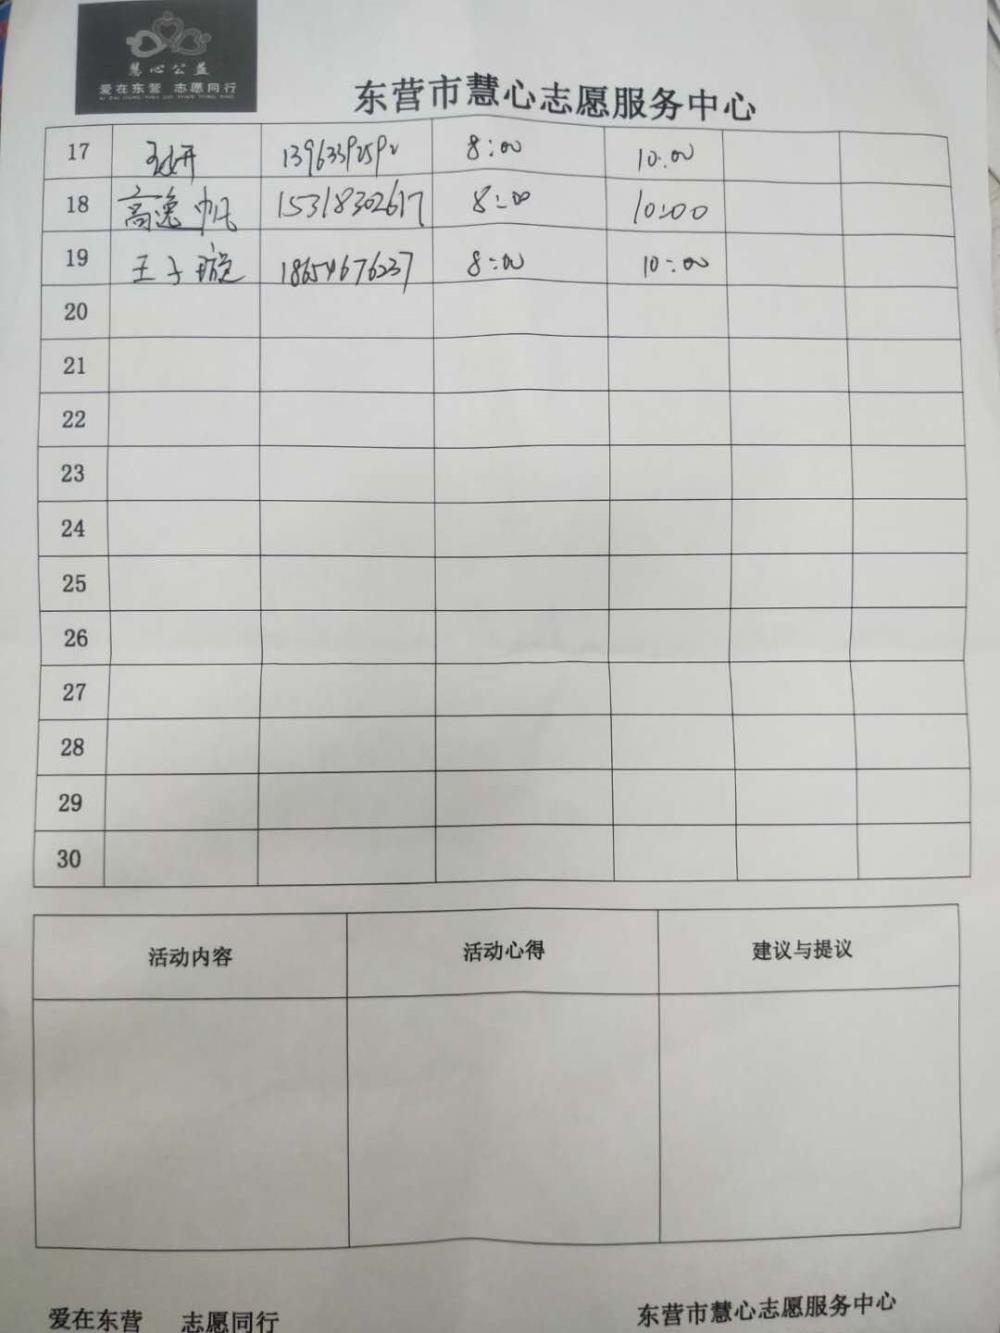 慧心公益
爱在东营 志愿同行
东营市慧心志愿服务中心
17 8:00 10:00
18 高逸帆 15318302617 8:00 10:00
19 王子璇 18654676237 8:00 10:00
20
21
22
23
24
25
26
27
28
29
30
活动内容 活动心得 建议与提议
爱在东营 志愿同行 东营市慧心志愿服务中心